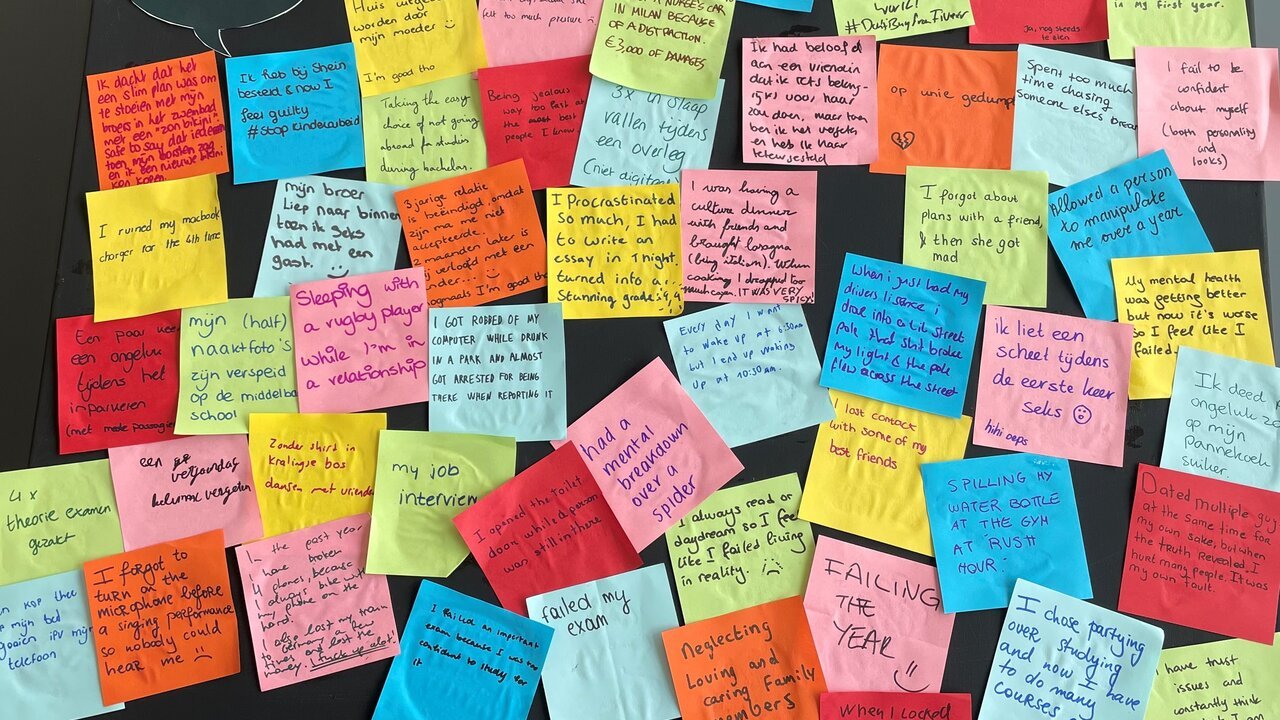 Huis uitgezet
worden door
mijn moeder
I'm good tho
felt too much pressure
A NURSE'S CAR
IN MILAN BECAUSE
OF A DISTRACTION.
€3,000 OF DAMAGES
Ja, nog steeds
te zien
in my first year.
Ik dacht dat het
een slim plan was om
te stoeien met mijn
broers in het zwembad
met een "zon bikini".
Safe to say dat iedereen
toen mijn borsten zag
en ik een nieuwe bikini
kon kopen.
Ik heb bij Shein
besteld & now I
feel guilty
#Stop kinderarbeid
Taking the easy
choice of not going
abroad for studies
during bachelors.
Being jealous
way too fast at
the most best
people I know.
3x in slaap
vallen tijdens
een overleg
(niet digitaal)
Ik had beloofd
aan een vriendin
dat ik iets
voor haar
zou doen, maar toen
ben ik het vergeten
en heb ik haar
teleurgesteld
op unie gedumpt
Spent too much
time chasing
someone elses
I fail to be
confident
about myself
(both personality
and
looks)
I ruined my macbook
charger for the 4th time
mijn broer
liep naar binnen
toen ik seks
had met een
gast.
3 jarige relatie
is beeindigd omdat
zijn ma me niet
accepteerde.
2 maanden later is
hij verloofd met een
ander...
nogmaals I'm good tho
I Procrastinated
So much, I had
to write an
essay in 1 night.
turned into a..
Stunning grade: 4,4
I was having a
culture dinner
with friends and
brought lasagna
(being italian). When
cooking I dropped too
much cayen. IT WAS VERY
SPICY!
I forgot about
plans with a friend,
& then she got
mad
Allowed a person
to manipulate
me over a year
My mental health
was getting better
but now it's worse
so I feel like I
failed.
Een paar keer
een ongeluk
tijdens het
inparkeren
(met mede passagier
mijn (half)
naaktfoto's
zijn verspreid
op de middelbare
school
Sleeping with
a rugby player
while I'm in
a relationship
I GOT ROBBED OF MY
COMPUTER WHILE DRUNK
IN A PARK AND ALMOST
GOT ARRESTED FOR BEING
THERE WHEN REPORTING IT
Every day I want
to wake up at 6:30am
but I end up waking
up at 10:30am.
When i just had my
drivers lisence i
drove into a lit street
pole. That shit broke
my light & the pole
flew across the street
ik liet een
scheet tijdens
de eerste keer
seks
hihi oeps
Ik deed
ongeluk
op mijn
pannekoek
suiker
4x
theorie examen
gezakt
een
verjaardag
helemaal vergeten
Zonder shirt in
kralingse bos
dansen met vrienden
my job
interview
I opened the toilet
door while a person
was still in there
had a
mental
breakdown
over a
spider
I always read or
daydream so I feel
like I failed living
in reality.
I lost contact
with some of my
best friends
SPILLING MY
WATER BOTTLE
AT THE GYM
AT "RUSH
HOUR"
Dated multiple guys
at the same time for
my own sake, but when
the truth revealed. I
hurt many people. It was
my own fault.
kop thee
op mijn bed
gooien ipv mijn
telefoon
I forgot to
turn on the
microphone before
a singing performance
so nobody could
hear me
In the past year
I have broken
4 phones, because
I always bike with
my phone on the
hand.
I also lost my train
to Germany a few
times and lost the
money. I fuck up a lot!
I failed an important
exam because I was too
confident to study for
it
failed my
exam
Neglecting
Loving and
caring Family
members
FAILING
THE
YEAR
When I locked
I chose partying
over studying
and now I have
to do many
courses
have trust
issues and
constantly think